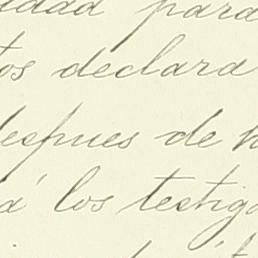 idad para
tos declara
despues de h
á los testigo